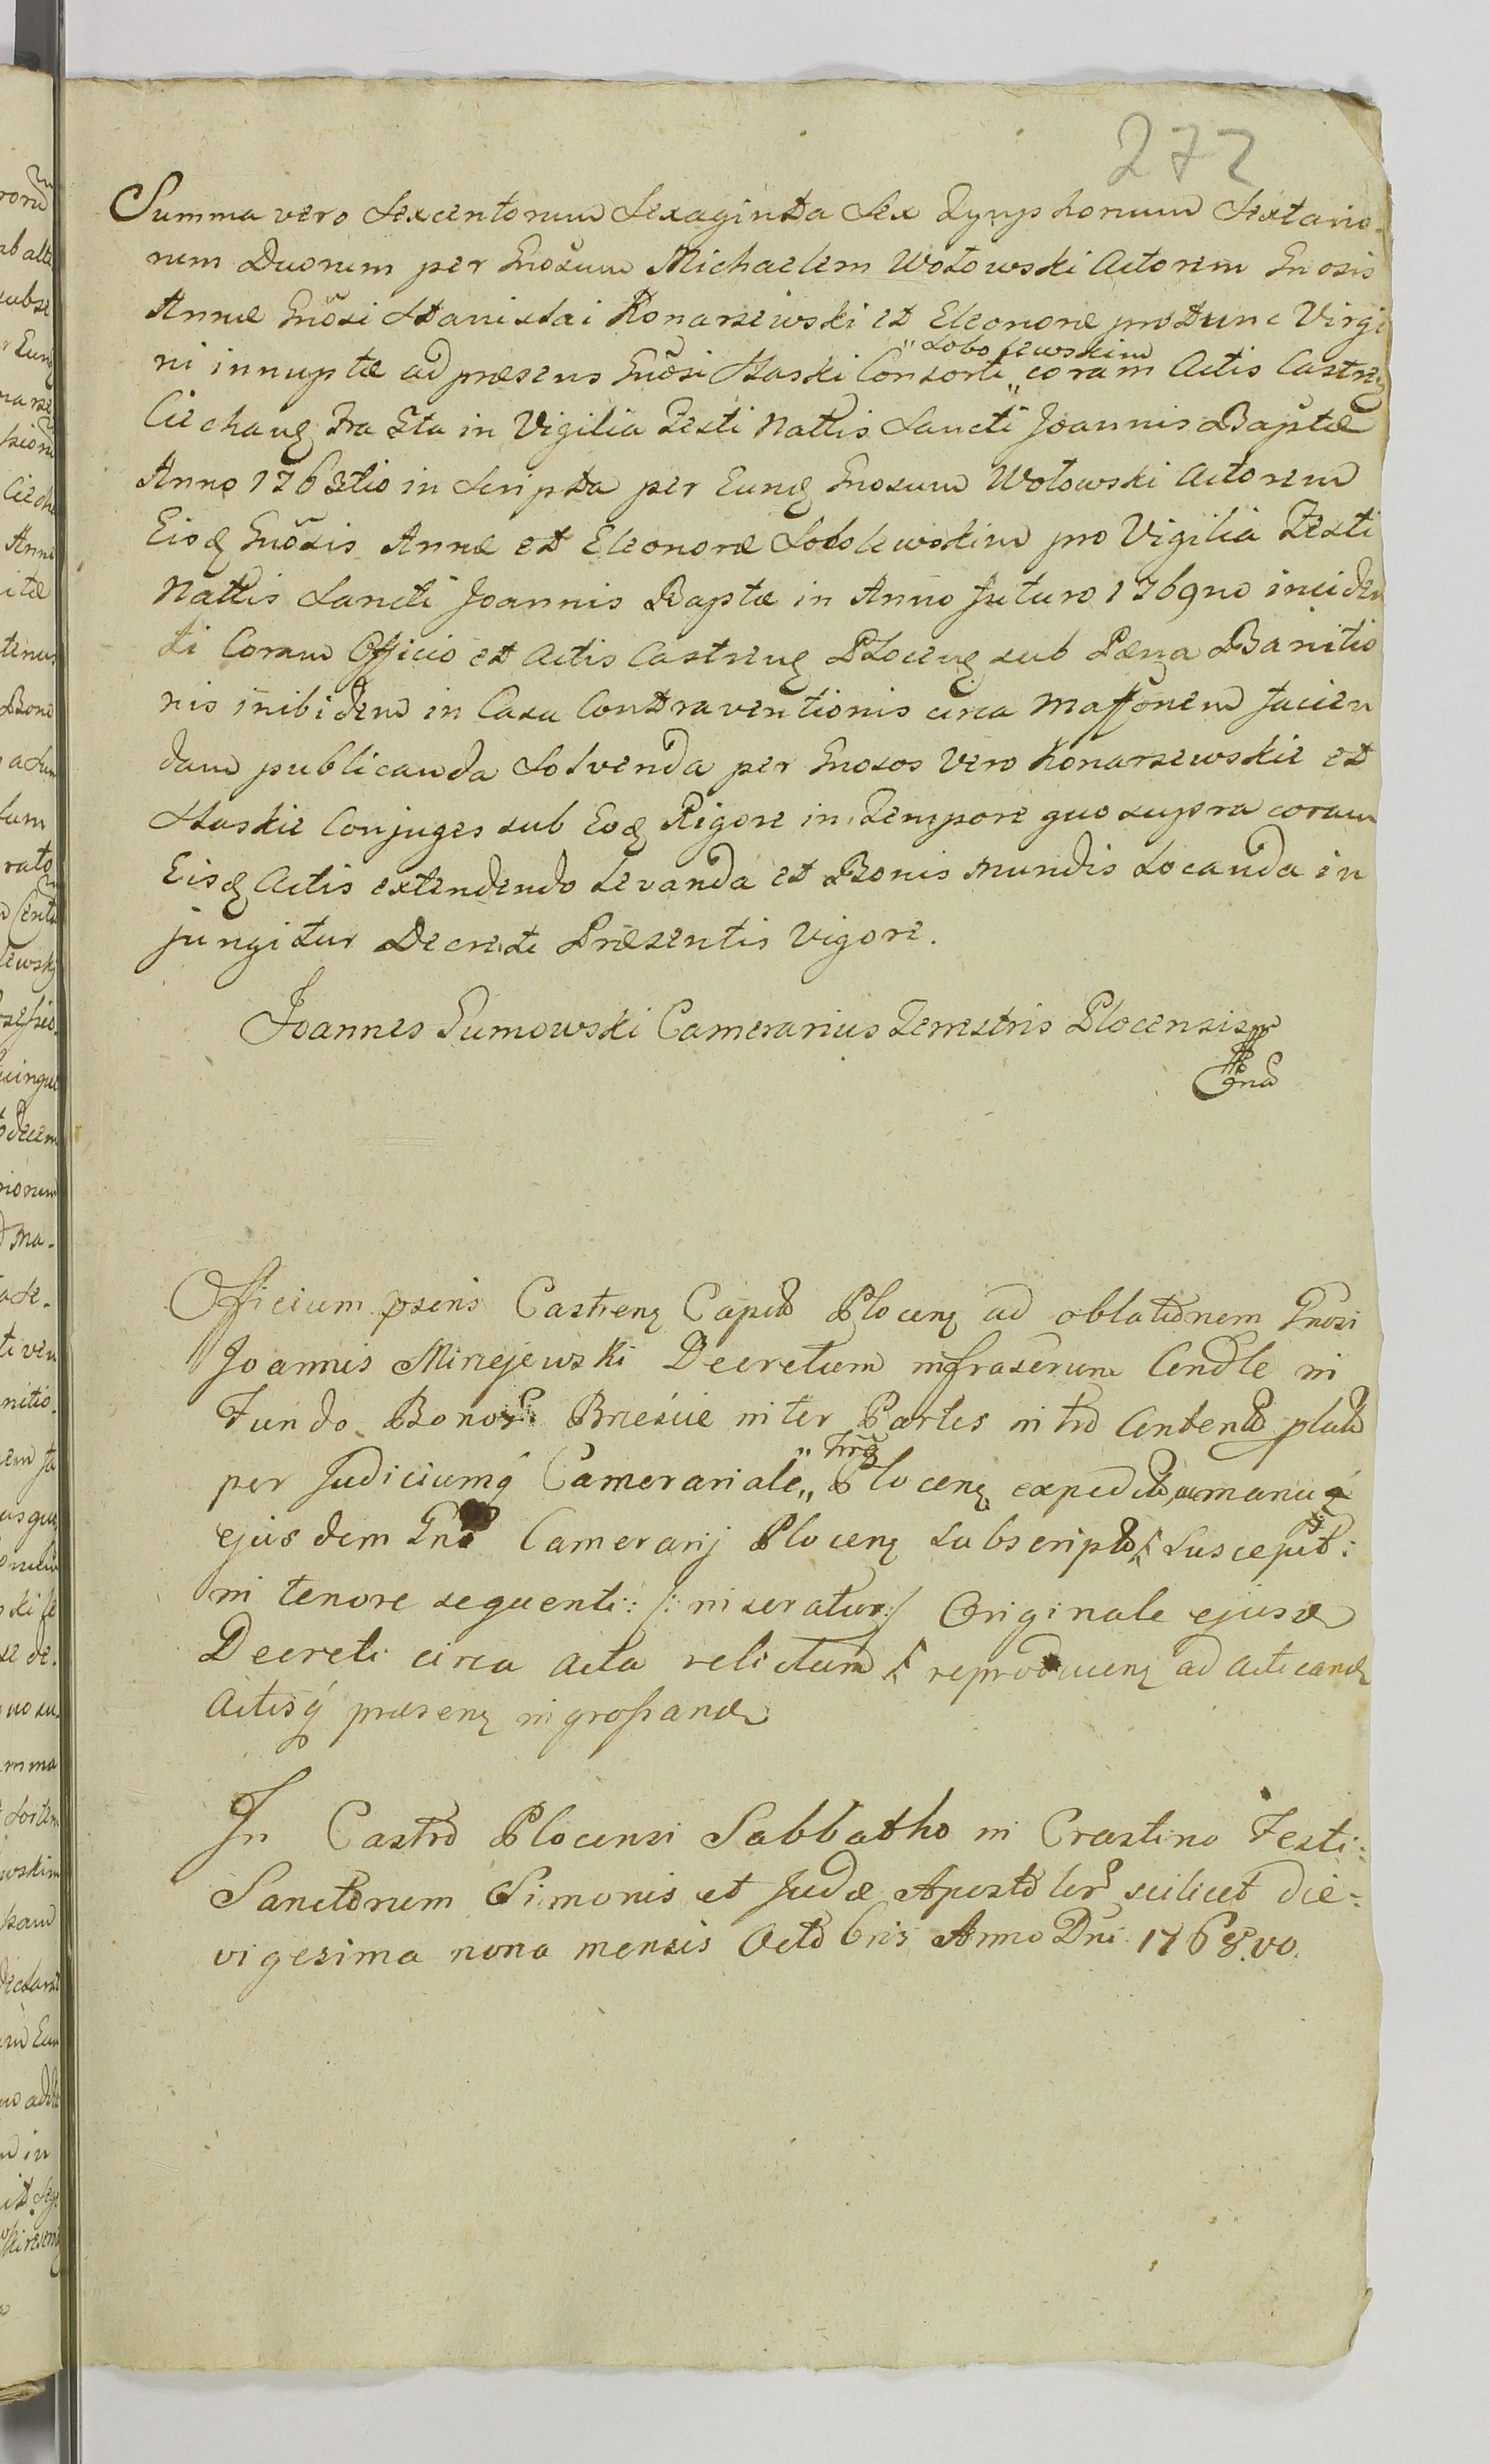 272
Summa vero Sexcentorum Sexaginta Sex Tynphonum Sextario-
rum Duorum per Gnosum Michaelem Wołowski Actorem Gnosis
Annæ Gnosi Stanislai Konarzewski et Eleonoræ protunc Virgi
ni innuptæ ad præsens Gnosi Staski Consorti „ Sobolewskim „ coram Actis Castren
Ciechanẽ Fra Sta in Vigilia Festi Nattis Sancti Joannis Baptæ
Anno 1763tio in Scripta per Eunđ Gnosum Wołowski Actorem
Eisđ Gnosis Annæ et Eleonoræ Sobolewskim pro Vigilia Festi
Nattis Sancti Joannis Baptæ in Anno futuro 1769no inciden
ti Coram Officio et Actis Castrenẽ Plocenẽ sub Pæna Banitio
nis inibidem in Casu Contraventionis circa Maffonem facien
dam publicanda Solvenda per Gnosos Vero Konarzewskie et
Staskie Conjuges sub Eođ Rigore in Tempore quo supra coram
Eisđ Actis extendendo Levanda et Bonis mundis Locanda in
jungitur Decreti Præsentis Vigore.
Joannes Sumowski Camerarius Terrestris Plocensis
Officium psens Castrenẽ Capit Plocenẽ ad oblationem Gnosi
Joannis Miniejewski Decretum infrascrum Cendle in
Fundo Bonor Briesiie inter Partes intro Contentũ platũ
per Judiciumq Camerariale „ Trrẽ „ Plocenẽ expeditũ manuq
ejusdem Gno Camerarij Plocenẽ subscriptũ Suscepit:
in tenore sequenti: /: inseratur :/ Originale ejusđ
Decreti circa acta relictum reproducenẽ ad acticanđ
Actisq præsenẽ ingrossanđ
In Castro Plocensi Sabbatho in Crastino Festi:
Sanctorum Simonis et Judæ Apostolor scilicet die-
vigesima nona mensis Octobris Anno Dni 1768.vo.